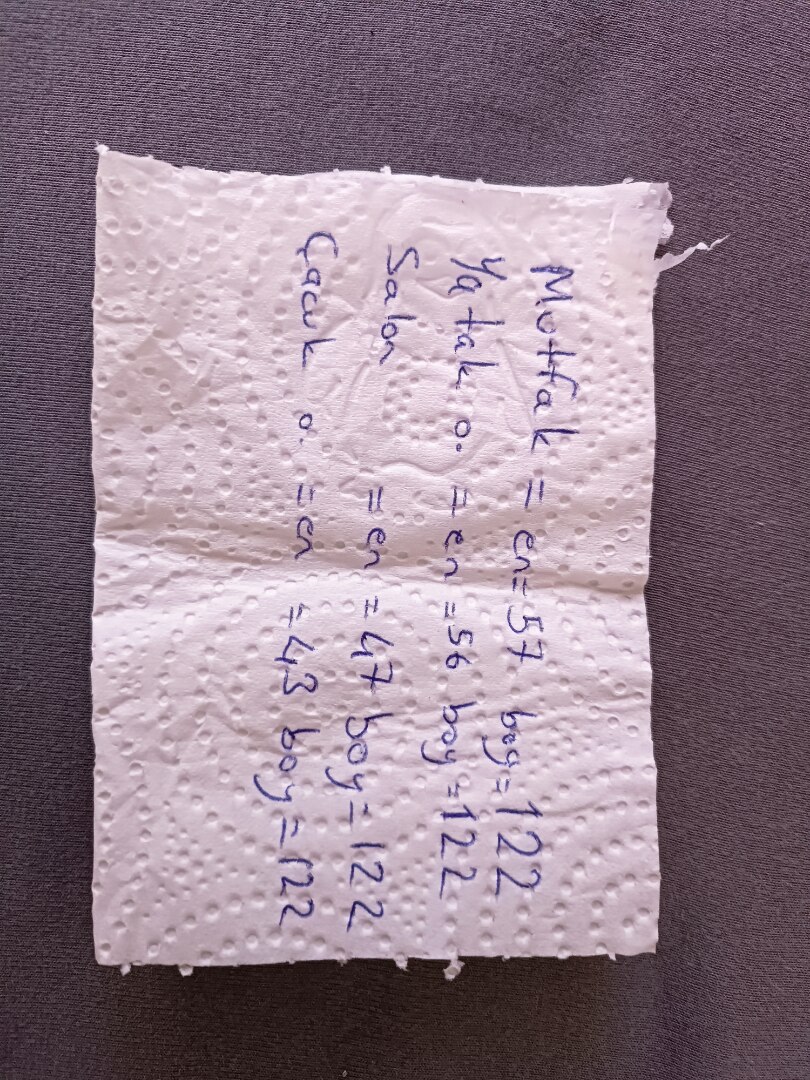 Mutfak = en = 57 boy = 122
Yatak o. = en = 56 boy = 122
Salon = en = 47 boy = 122
Çocuk o. = en = 43 boy = 122